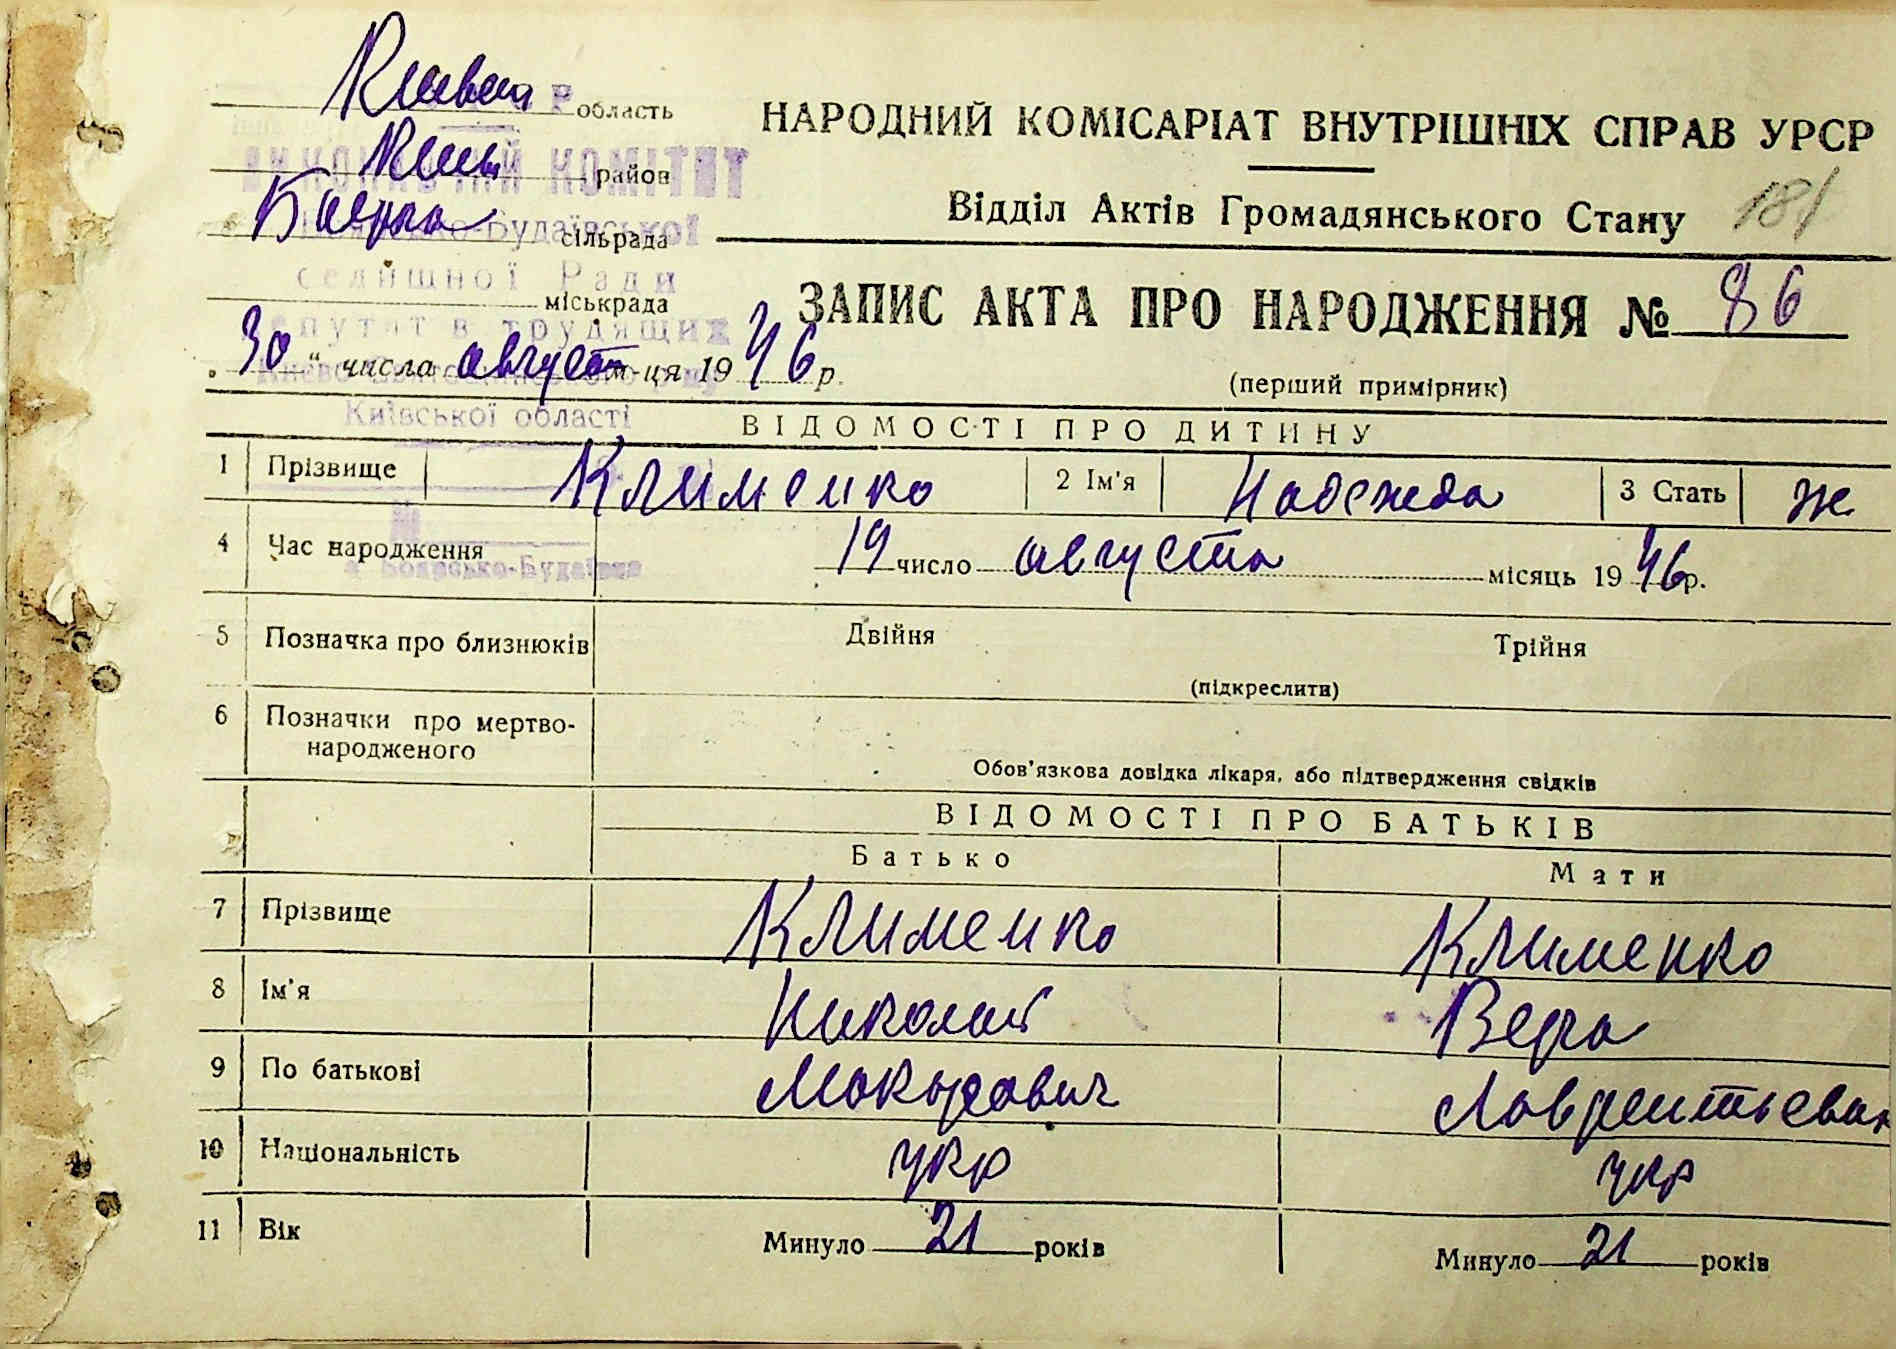 область
район
Боярка сільрада
міськрада
"30" числа август м-ця 1946 р.
НАРОДНИЙ КОМІСАРІАТ ВНУТРІШНІХ СПРАВ УРСР
Відділ Актів Громадянського Стану 181
ЗАПИС АКТА ПРО НАРОДЖЕННЯ № 86
(перший примірник)
селищної Ради
депутатів трудящих
Київської області
ВІДОМОСТІ ПРО ДИТИНУ
1 Прізвище Клименко 2 Ім'я Надежда 3 Стать ж
4 Час народження 19 число августа місяць 1946 р.
м. Боярсько-Будаївка
5 Позначка про близнюків Двійня Трійня
(підкреслити)
6 Позначки про мертво-
народженого
Обов'язкова довідка лікаря, або підтвердження свідків
ВІДОМОСТІ ПРО БАТЬКІВ
Батько Мати
7 Прізвище Клименко Клименко
8 Ім'я Николай Вера
9 По батькові Макарович Лаврентьевна
10 Національність укр укр
11 Вік Минуло 21 років Минуло 21 років